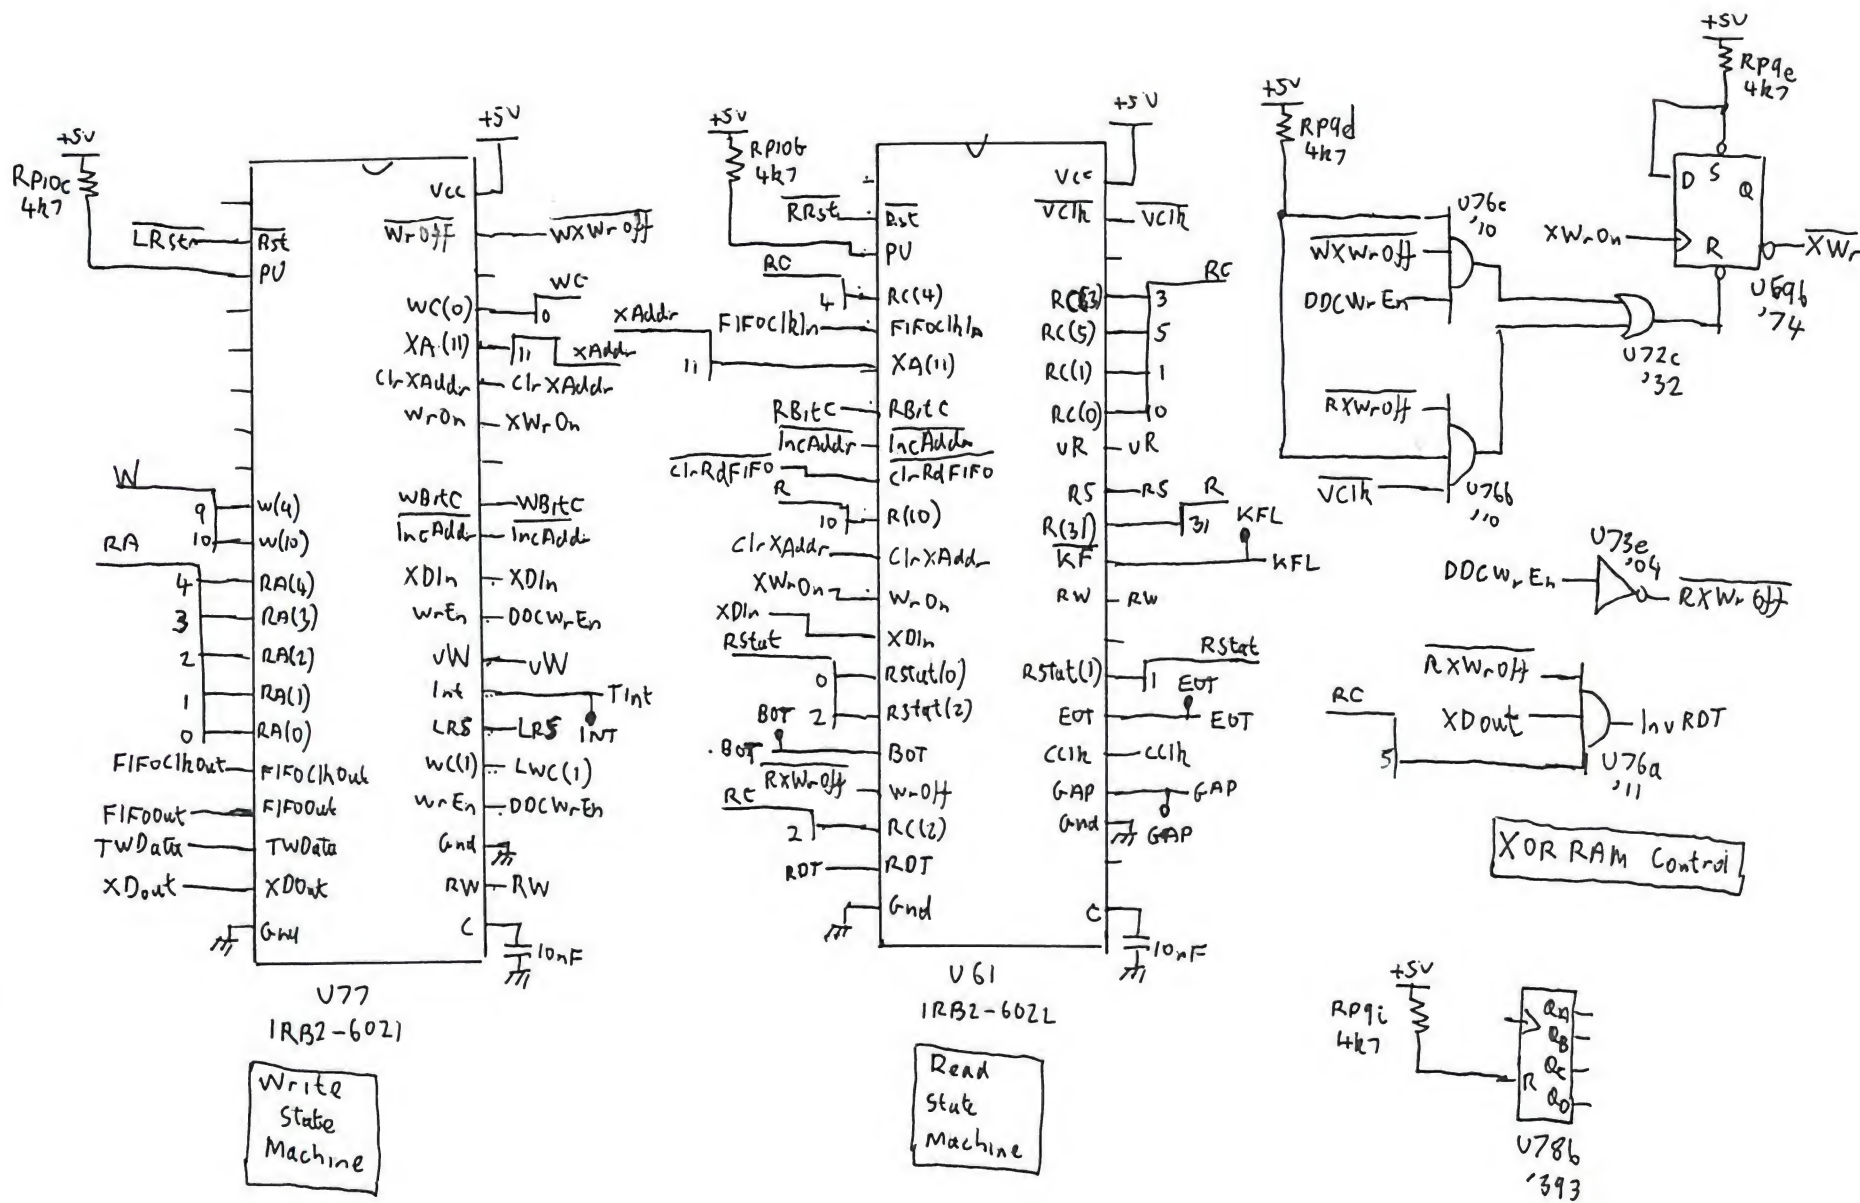 +5V
RP10c
4k7
LRst
Rst
PU
W
9
W(4)
10
W(10)
RA
4
RA(4)
3
RA(3)
2
RA(2)
1
RA(1)
0
RA(0)
FIFOClkOut
FIFOClkOut
FIFOOut
FIFOOut
TWData
TWData
XDout
XDOut
Gnd
+5V
Vcc
WrOff
WXWrOff
WC(0)
WC
0
XA(11)
11
XAddr
ClrXAddr
ClrXAddr
WrOn
XWrOn
WBitC
WBitC
IncAddr
IncAddr
XDIn
XDIn
WrEn
DDCWrEn
UW
UW
Int
TInt
INT
LRS
LRS
WC(1)
LWC(1)
WrEn
DDCWrEn
Gnd
RW
RW
C
10nF
U77
IRB2-6021
Write
State
Machine
+5V
RP10b
4k7
RRst
Rst
PU
RC
4
RC(4)
FIFOClkIn
FIFOClkIn
XAddr
11
XA(11)
RBitC
RBitC
IncAddr
IncAddr
ClrRdFIFO
ClrRdFIFO
R
10
R(10)
ClrXAddr
ClrXAddr
XWrOn
WrOn
XDIn
XDIn
RStat
0
RStat(0)
2
RStat(2)
BOT
BOT
BOT
RXWrOff
WrOff
RC
2
RC(2)
RDT
RDT
Gnd
+5V
Vcc
VClk
VClk
RC
RC(3)
3
RC(5)
5
RC(1)
1
RC(0)
0
UR
UR
RS
RS
R(31)
R
31
KFL
KF
KFL
RW
RW
RStat
RStat(1)
1
EOT
EOT
EOT
CClk
CClk
GAP
GAP
GAP
Gnd
C
10nF
U61
IRB2-6022
Read
State
Machine
+5V
RP9d
4k7
U76c
'10
WXWrOff
DDCWrEn
RXWrOff
VClk
U76b
'10
U72c
'32
+5V
RP9e
4k7
D
S
Q
R
XWrOn
XWr
U69b
'74
U73e
'04
DDCWrEn
RXWrOff
RXWrOff
RC
XDout
5
InvRDT
U76a
'11
XOR RAM Control
+5V
RP9i
4k7
R
QA
QB
QC
QD
U78b
'393